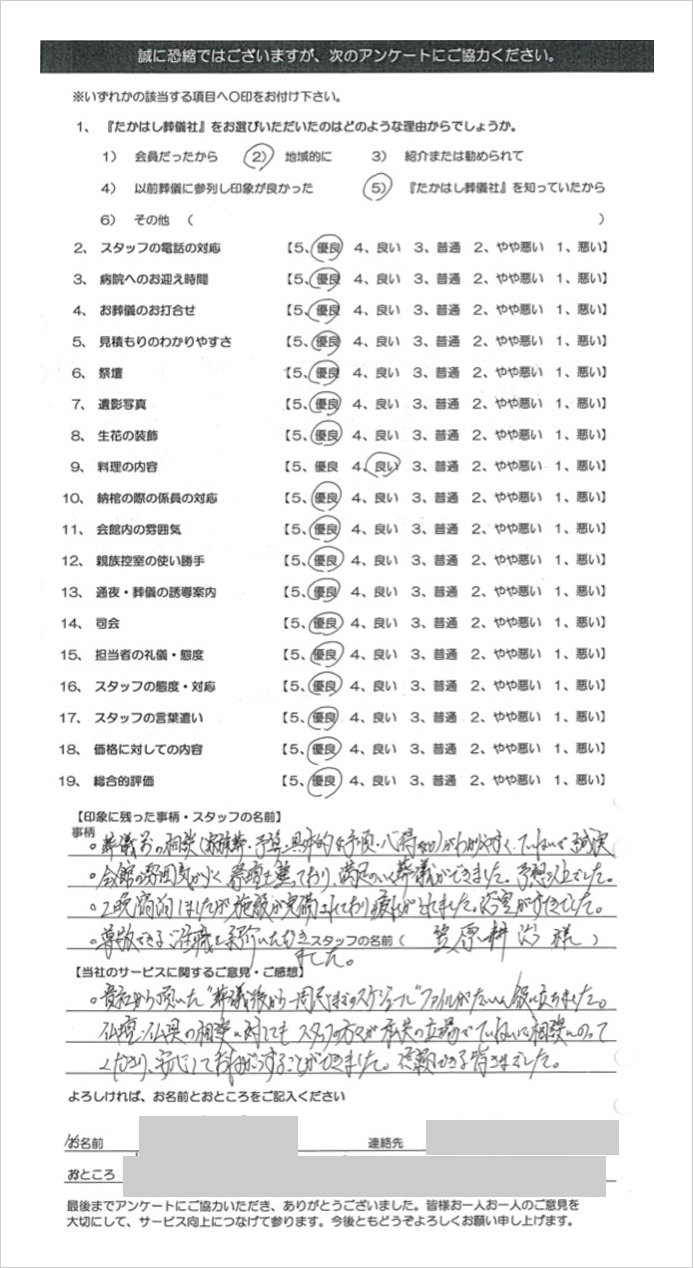 誠に恐縮ではございますが、次のアンケートにご協力ください。
※いずれかの該当する項目へ○印をお付け下さい。
1、『たかはし葬儀社』をお選びいただいたのはどのような理由からでしょうか。
1） 会員だったから 2） 地域的に 3） 紹介または勧められて
4） 以前葬儀に参列し印象が良かった 5） 『たかはし葬儀社』を知っていたから
6） その他 （ ）
2、スタッフの電話の対応 【5、優良 4、良い 3、普通 2、やや悪い 1、悪い】
3、病院へのお迎え時間 【5、優良 4、良い 3、普通 2、やや悪い 1、悪い】
4、お葬儀のお打合せ 【5、優良 4、良い 3、普通 2、やや悪い 1、悪い】
5、見積もりのわかりやすさ 【5、優良 4、良い 3、普通 2、やや悪い 1、悪い】
6、祭壇 【5、優良 4、良い 3、普通 2、やや悪い 1、悪い】
7、遺影写真 【5、優良 4、良い 3、普通 2、やや悪い 1、悪い】
8、生花の装飾 【5、優良 4、良い 3、普通 2、やや悪い 1、悪い】
9、料理の内容 【5、優良 4、良い 3、普通 2、やや悪い 1、悪い】
10、納棺の際の係員の対応 【5、優良 4、良い 3、普通 2、やや悪い 1、悪い】
11、会館内の雰囲気 【5、優良 4、良い 3、普通 2、やや悪い 1、悪い】
12、親族控室の使い勝手 【5、優良 4、良い 3、普通 2、やや悪い 1、悪い】
13、通夜・葬儀の誘導案内 【5、優良 4、良い 3、普通 2、やや悪い 1、悪い】
14、司会 【5、優良 4、良い 3、普通 2、やや悪い 1、悪い】
15、担当者の礼儀・態度 【5、優良 4、良い 3、普通 2、やや悪い 1、悪い】
16、スタッフの態度・対応 【5、優良 4、良い 3、普通 2、やや悪い 1、悪い】
17、スタッフの言葉遣い 【5、優良 4、良い 3、普通 2、やや悪い 1、悪い】
18、価格に対しての内容 【5、優良 4、良い 3、普通 2、やや悪い 1、悪い】
19、総合的評価 【5、優良 4、良い 3、普通 2、やや悪い 1、悪い】
【印象に残った事柄・スタッフの名前】
事柄
。葬儀前の相談（家族葬・予算・具体的な手順・心得など）がわかりやすく、ていねいで誠実
。会館の雰囲気が良く、満足のいく葬儀ができました。予想以上でした。
。2晩宿泊しましたが施設が完備されており疲れがとれました。浴室がすてきでした。
。尊敬できるご住職を紹介いただきました。
スタッフの名前（ 笠原 耕治 様 ）
【当社のサービスに関するご意見・ご感想】
。貴社から頂いた“葬儀後から一周忌までのスケジュール”ファイルがたいへん役に立ちました。
仏壇・仏具の相談に対しても スタッフの方々が 私共の立場でていねいに相談にのって
くださり、安心しておねがいすることができました。信頼できる皆さまでした。
よろしければ、お名前とおところをご記入ください
お名前 連絡先
おところ
最後までアンケートにご協力いただき、ありがとうございました。皆様お一人お一人のご意見を
大切にして、サービス向上につなげて参ります。今後ともどうぞよろしくお願い申し上げます。